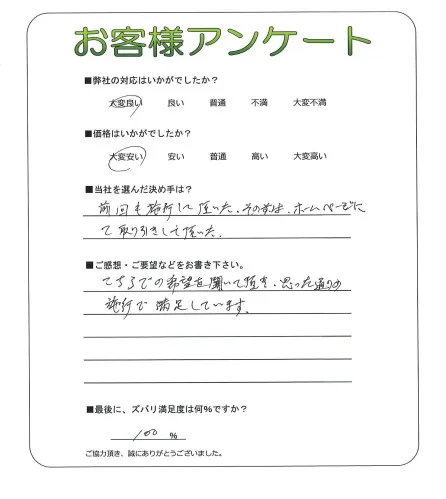 お客様アンケート
■弊社の対応はいかがでしたか？
大変良い 良い 普通 不満 大変不満
■価格はいかがでしたか？
大変安い 安い 普通 高い 大変高い
■当社を選んだ決め手は？
前回も施行して頂いた。その前は、ホームページに
て取り引きして頂いた。
■ご感想・ご要望などをお書き下さい。
こちらでの希望を聞いて頂き、思った通りの
施行で満足しています。
■最後に、ズバリ満足度は何％ですか？
100 ％
ご協力頂き、誠にありがとうございました。